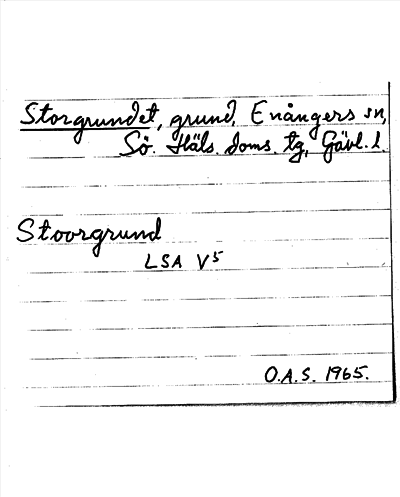 Storgrundet, grund, Enångers sn,
Sö. Häls. doms. tg, Gävl. l.
Stoorgrund
LSA V5
O.A.S. 1965.